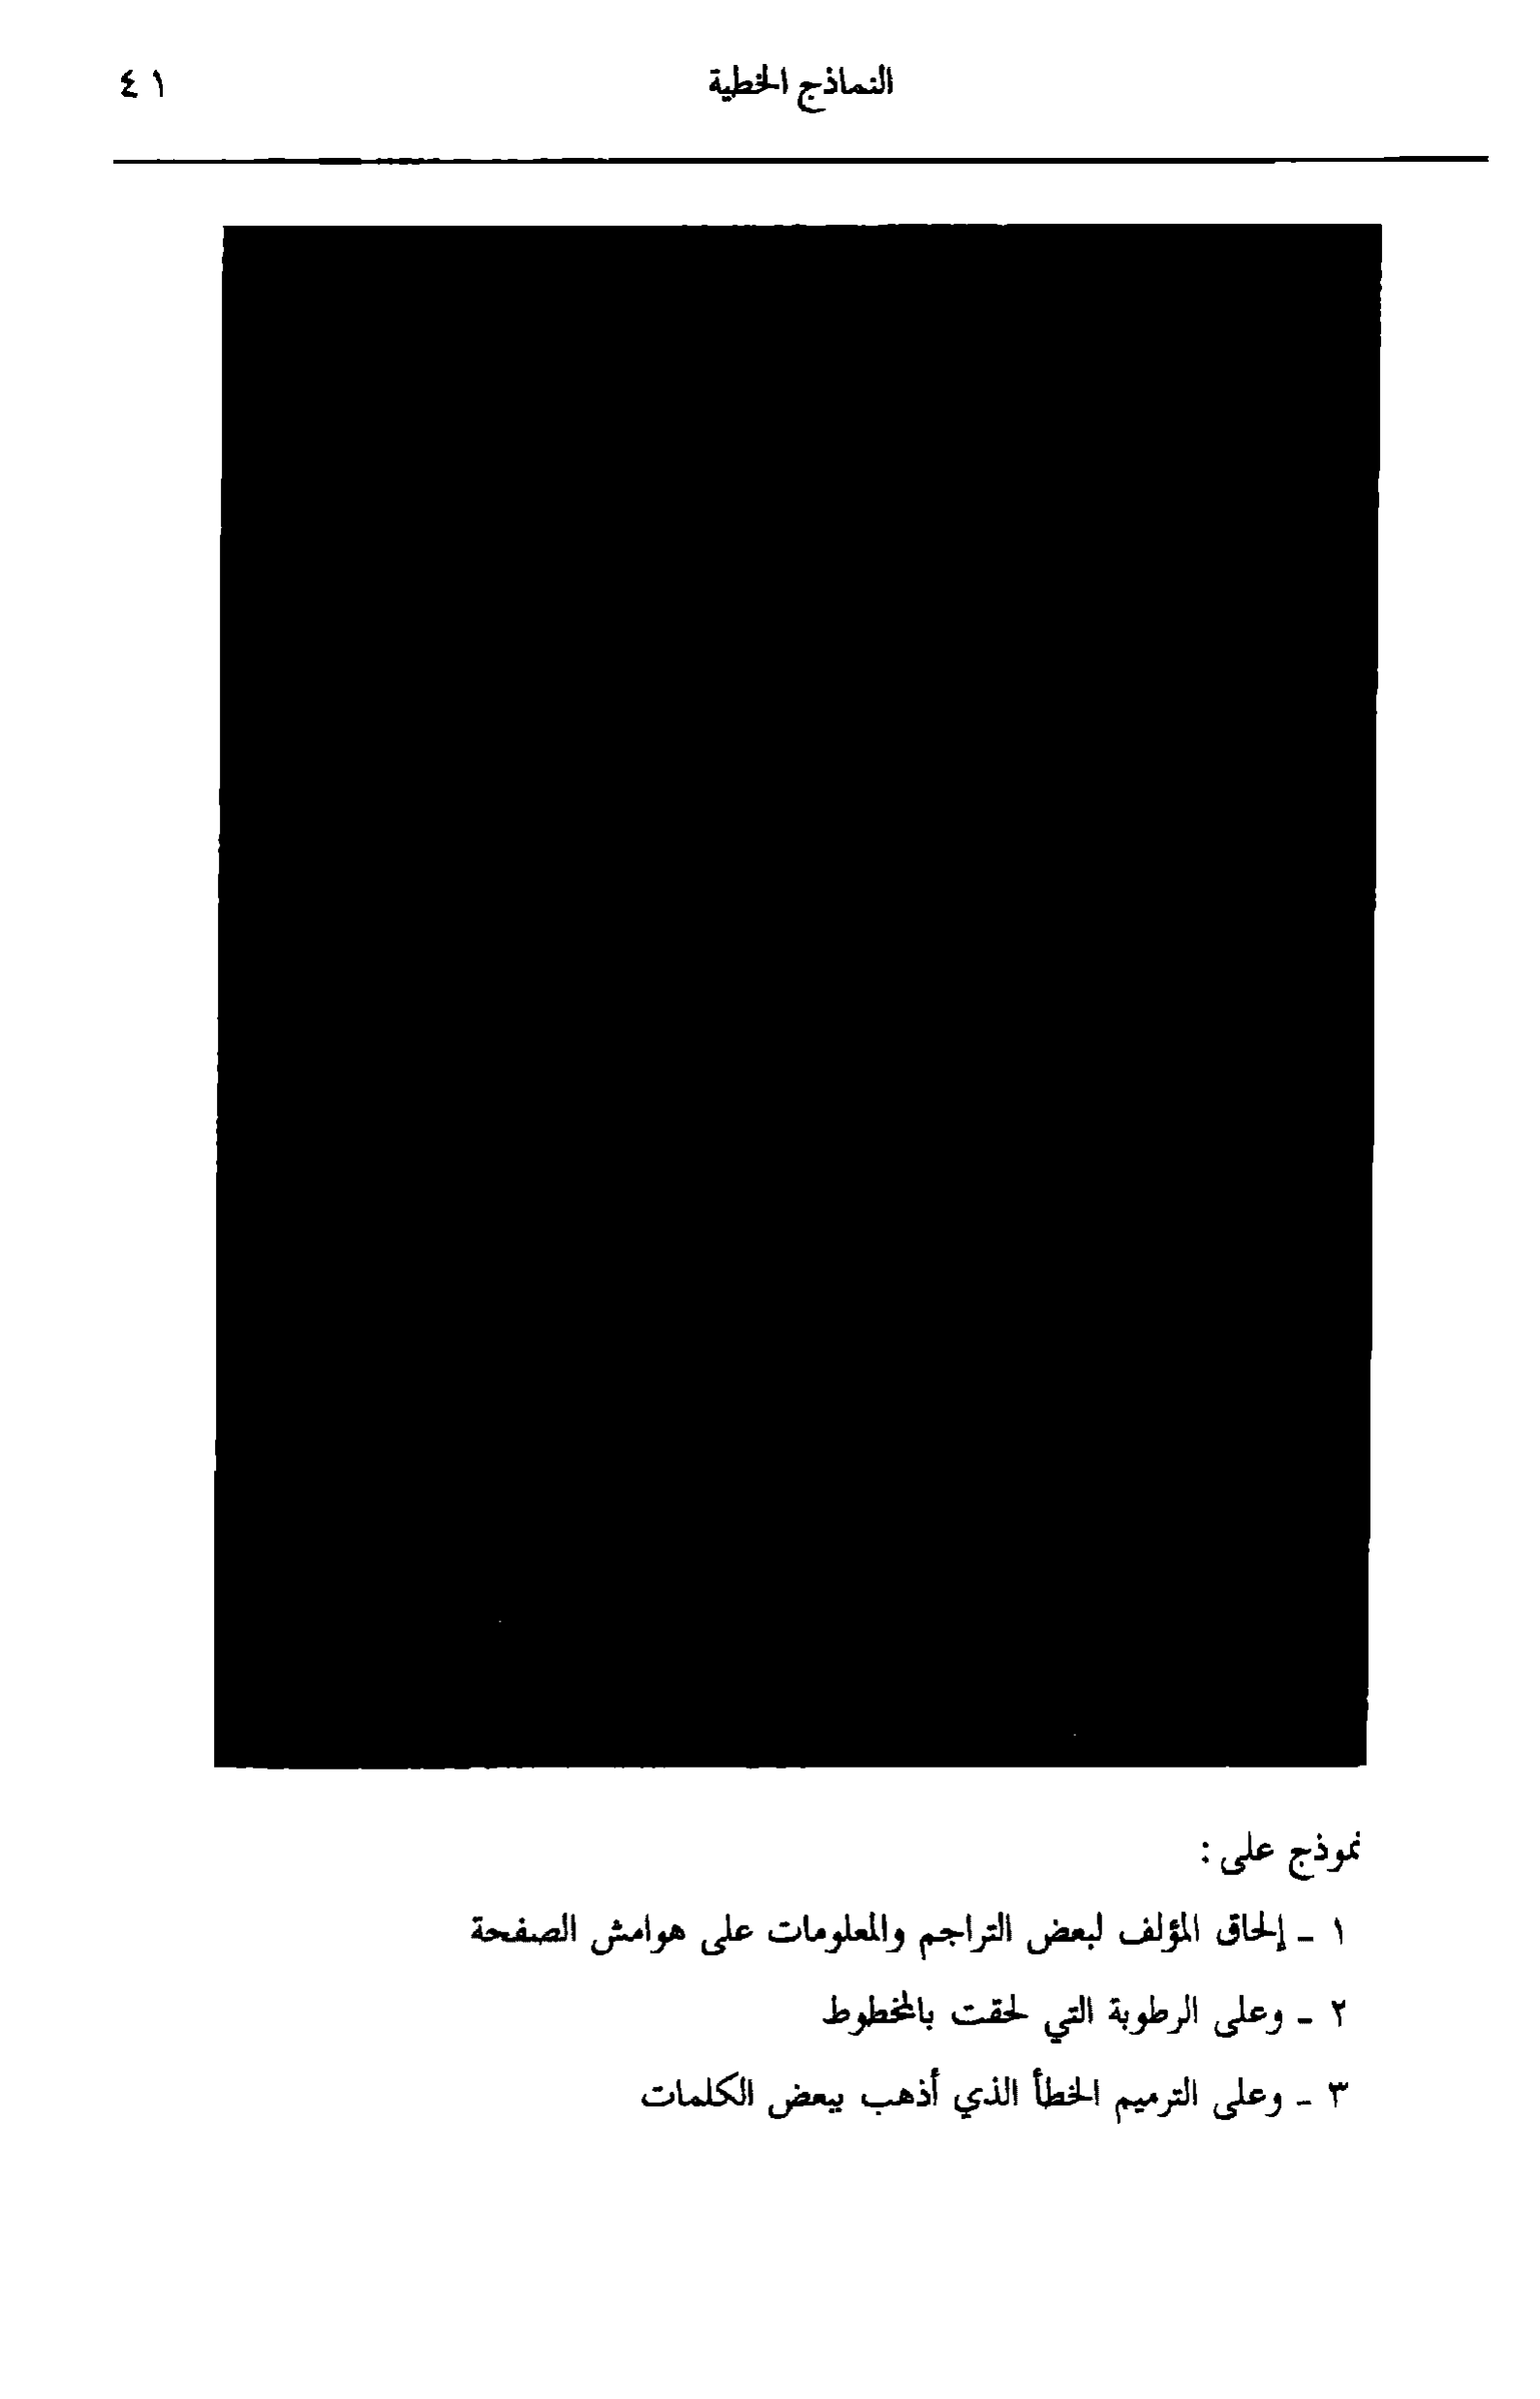 النماذج الخطية ٤١
نموذج على :
١ - إلحاق المؤلف لبعض التراجم والمعلومات على هوامش الصفحة
٢ - وعلى الرطوبة التي لحقت بالمخطوط
٣ - وعلى الترميم الخطأ الذي أذهب ببعض الكلمات